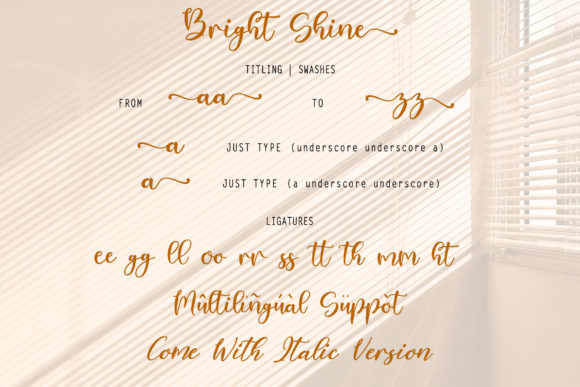 Bright Shine
TITLING | SWASHES
FROM aa TO zz
a JUST TYPE (underscore underscore a)
a JUST TYPE (a underscore underscore)
LIGATURES
ee gg ll oo rr ss tt th mm ht
Mûltilïñgúàl Süppòt
Come With Italic Version